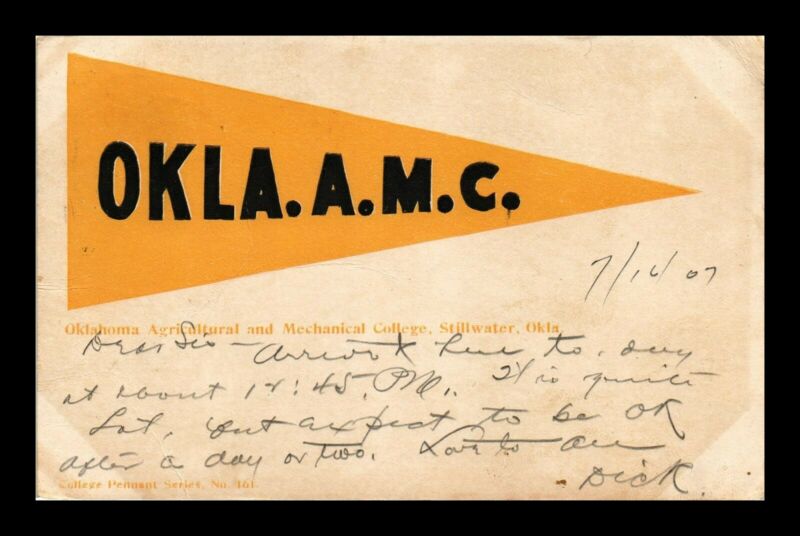 OKLA.A.M.C.
7/16/07
Oklahoma Agricultural and Mechanical College, Stillwater, Okla.
Dear Sis – Arrived here to-day
at about 12:45 PM. It is quite
hot, but expect to be OK
after a day or two. Love to all
Dick.
College Pennant Series, No. 161